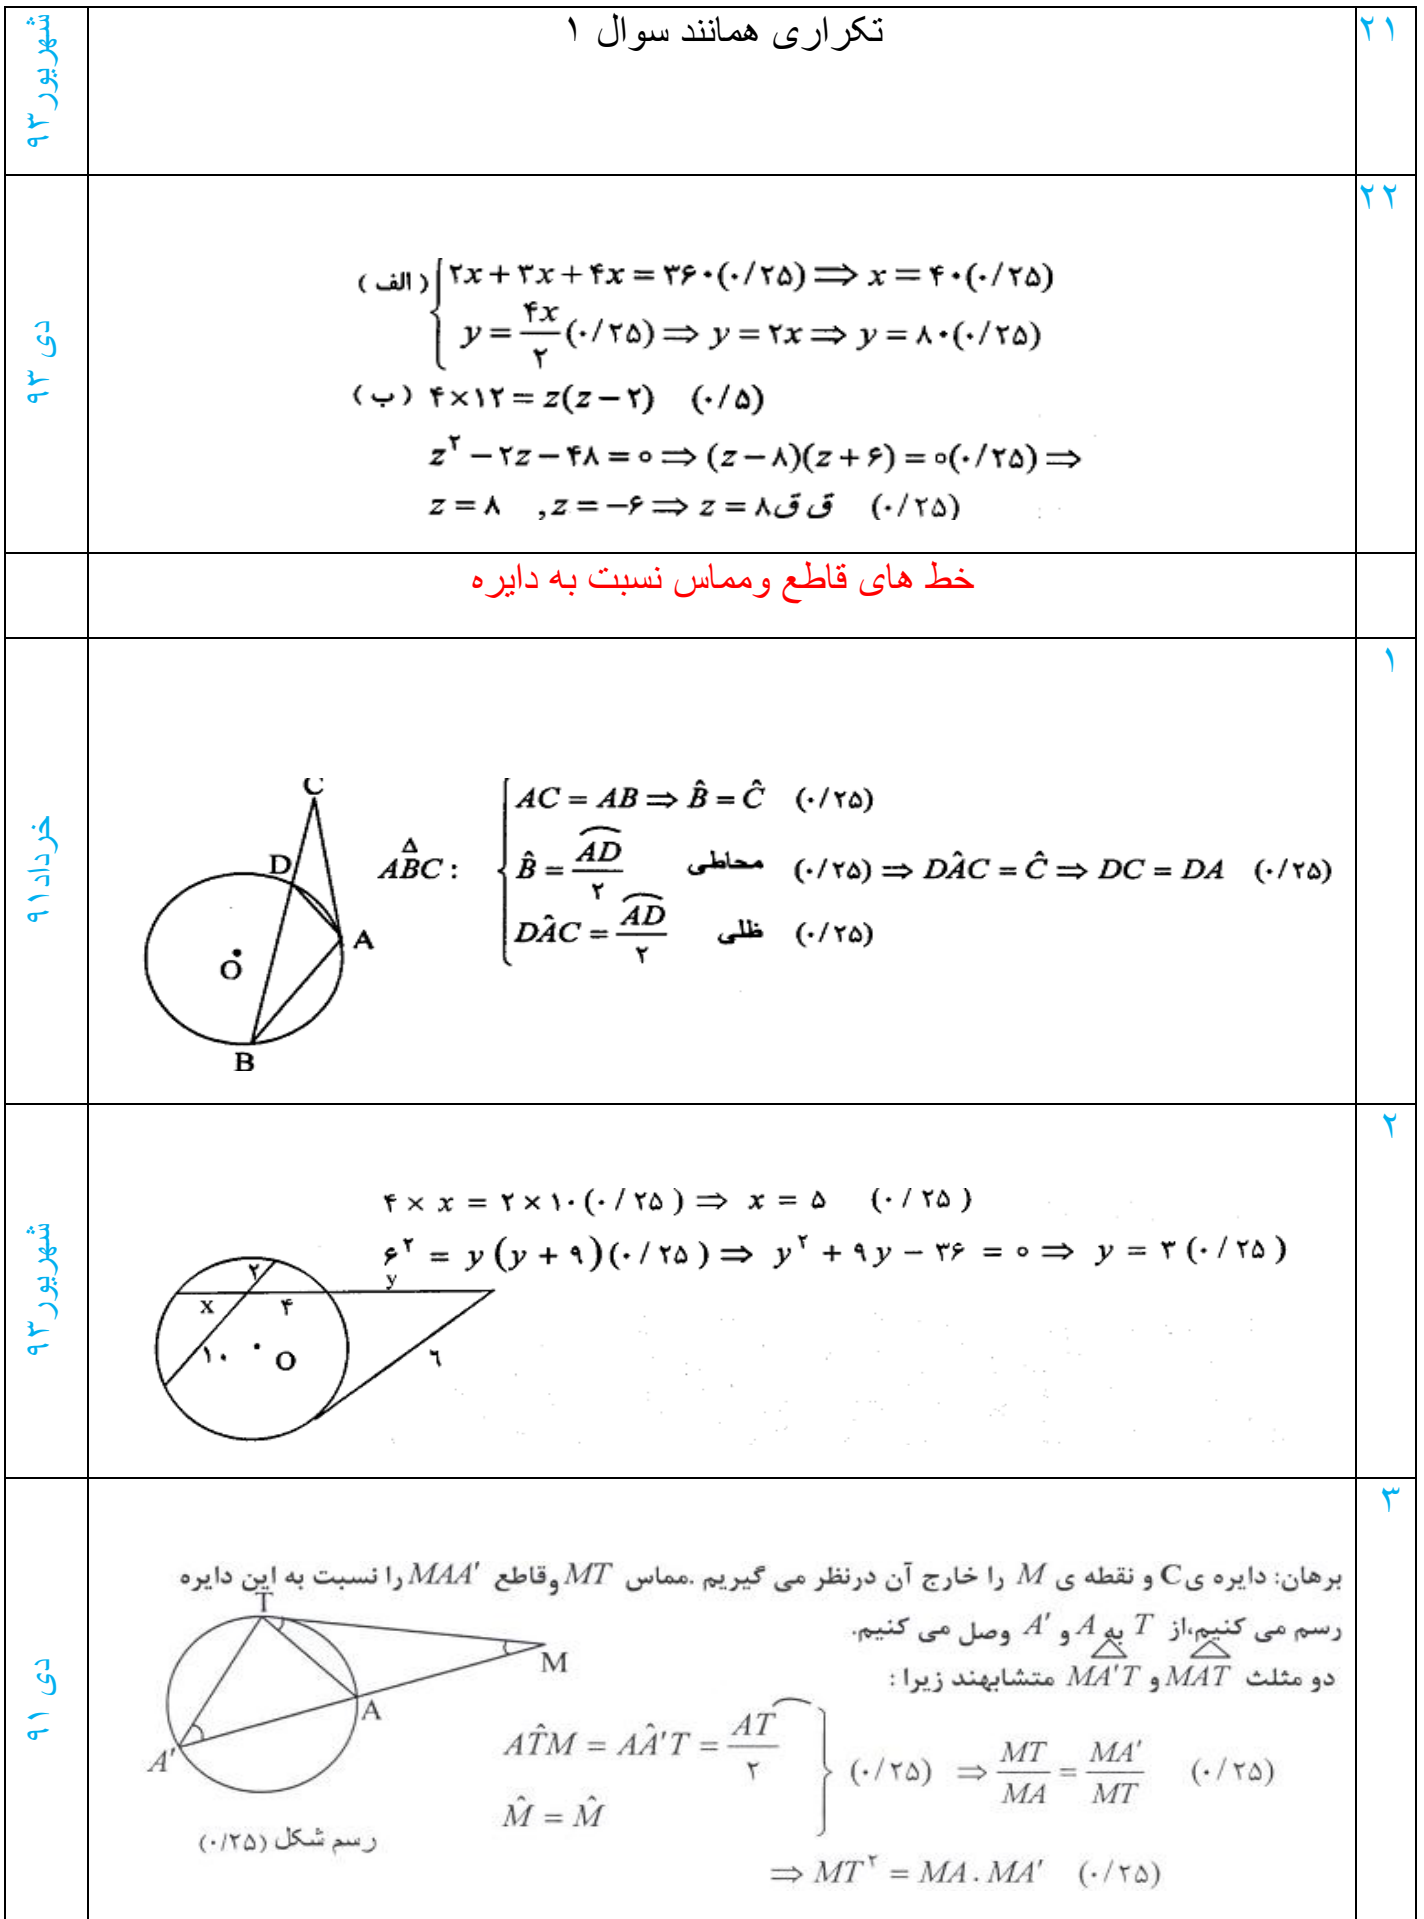 ۲۱
تکراری همانند سوال ۱
شهریور ۹۳
۲۲
الف) ۲x + ۳x + ۴x = ۳۶۰(۰/۲۵) ⇒ x = ۴۰(۰/۲۵)
y = ۴x/۲ (۰/۲۵) ⇒ y = ۲x ⇒ y = ۸۰(۰/۲۵)
ب) ۴×۱۲ = z(z − ۲) (۰/۵)
z^۲ − ۲z − ۴۸ = ۰ ⇒ (z − ۸)(z + ۶) = ۰(۰/۲۵) ⇒
z = ۸ , z = −۶ ⇒ z = ۸ ق ق (۰/۲۵)
دی ۹۳
خط های قاطع ومماس نسبت به دایره
۱
C
D
A
O
B
AC = AB ⇒ B̂ = Ĉ (۰/۲۵)
ABC : B̂ = AD/۲ محاطی (۰/۲۵) ⇒ DÂC = Ĉ ⇒ DC = DA (۰/۲۵)
DÂC = AD/۲ ظلی (۰/۲۵)
خرداد۹۱
۲
۴ × x = ۲ × ۱۰(۰/۲۵) ⇒ x = ۵ (۰/۲۵)
۶^۲ = y(y + ۹)(۰/۲۵) ⇒ y^۲ + ۹y − ۳۶ = ۰ ⇒ y = ۳(۰/۲۵)
y
۲
x
۴
۱۰
O
٦
شهریور ۹۳
۳
برهان: دایره یC و نقطه ی M را خارج آن درنظر می گیریم .مماس MT وقاطع MAA′ را نسبت به این دایره
رسم می کنیم،از T به A و A′ وصل می کنیم.
دو مثلث MAT و MA′T متشابهند زیرا :
T
M
A
A′
AT̂M = AÂ′T = AT/۲
M̂ = M̂
(۰/۲۵) ⇒ MT/MA = MA′/MT (۰/۲۵)
⇒ MT^۲ = MA . MA′ (۰/۲۵)
رسم شکل (۰/۲۵)
دی ۹۱